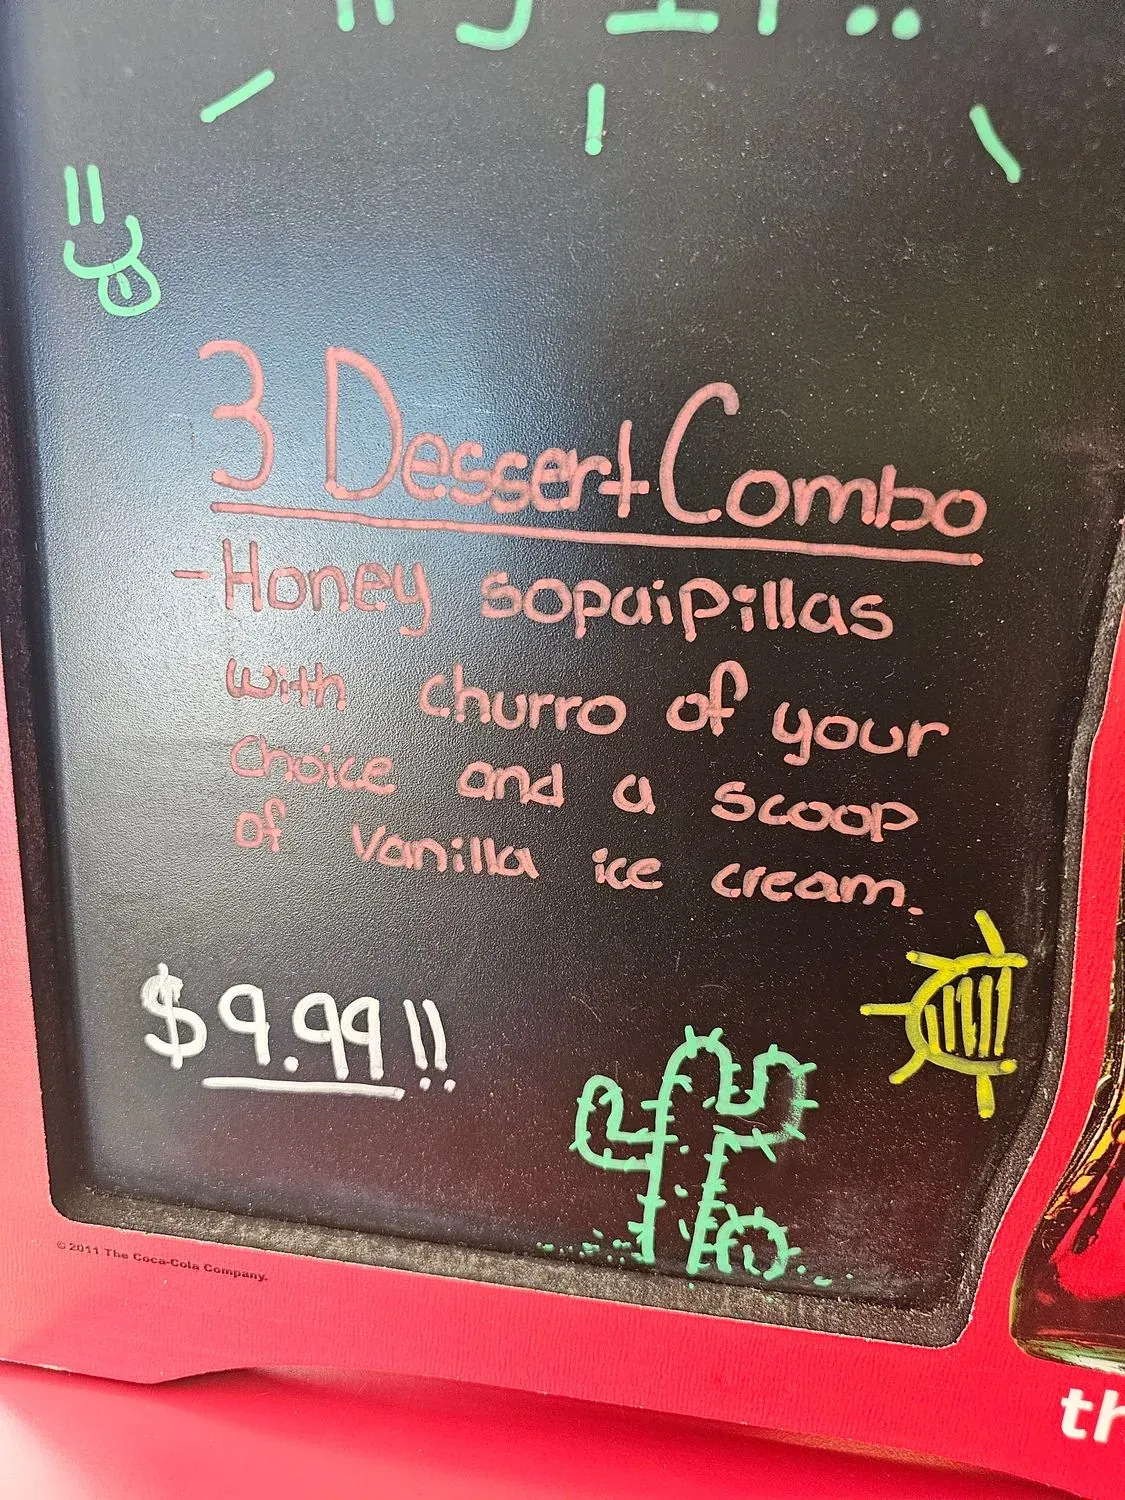 3 Dessert Combo
- Honey sopaipillas
with churro of your
choice and a scoop
of Vanilla ice cream.
$9.99!!
© 2011 The Coca-Cola Company.